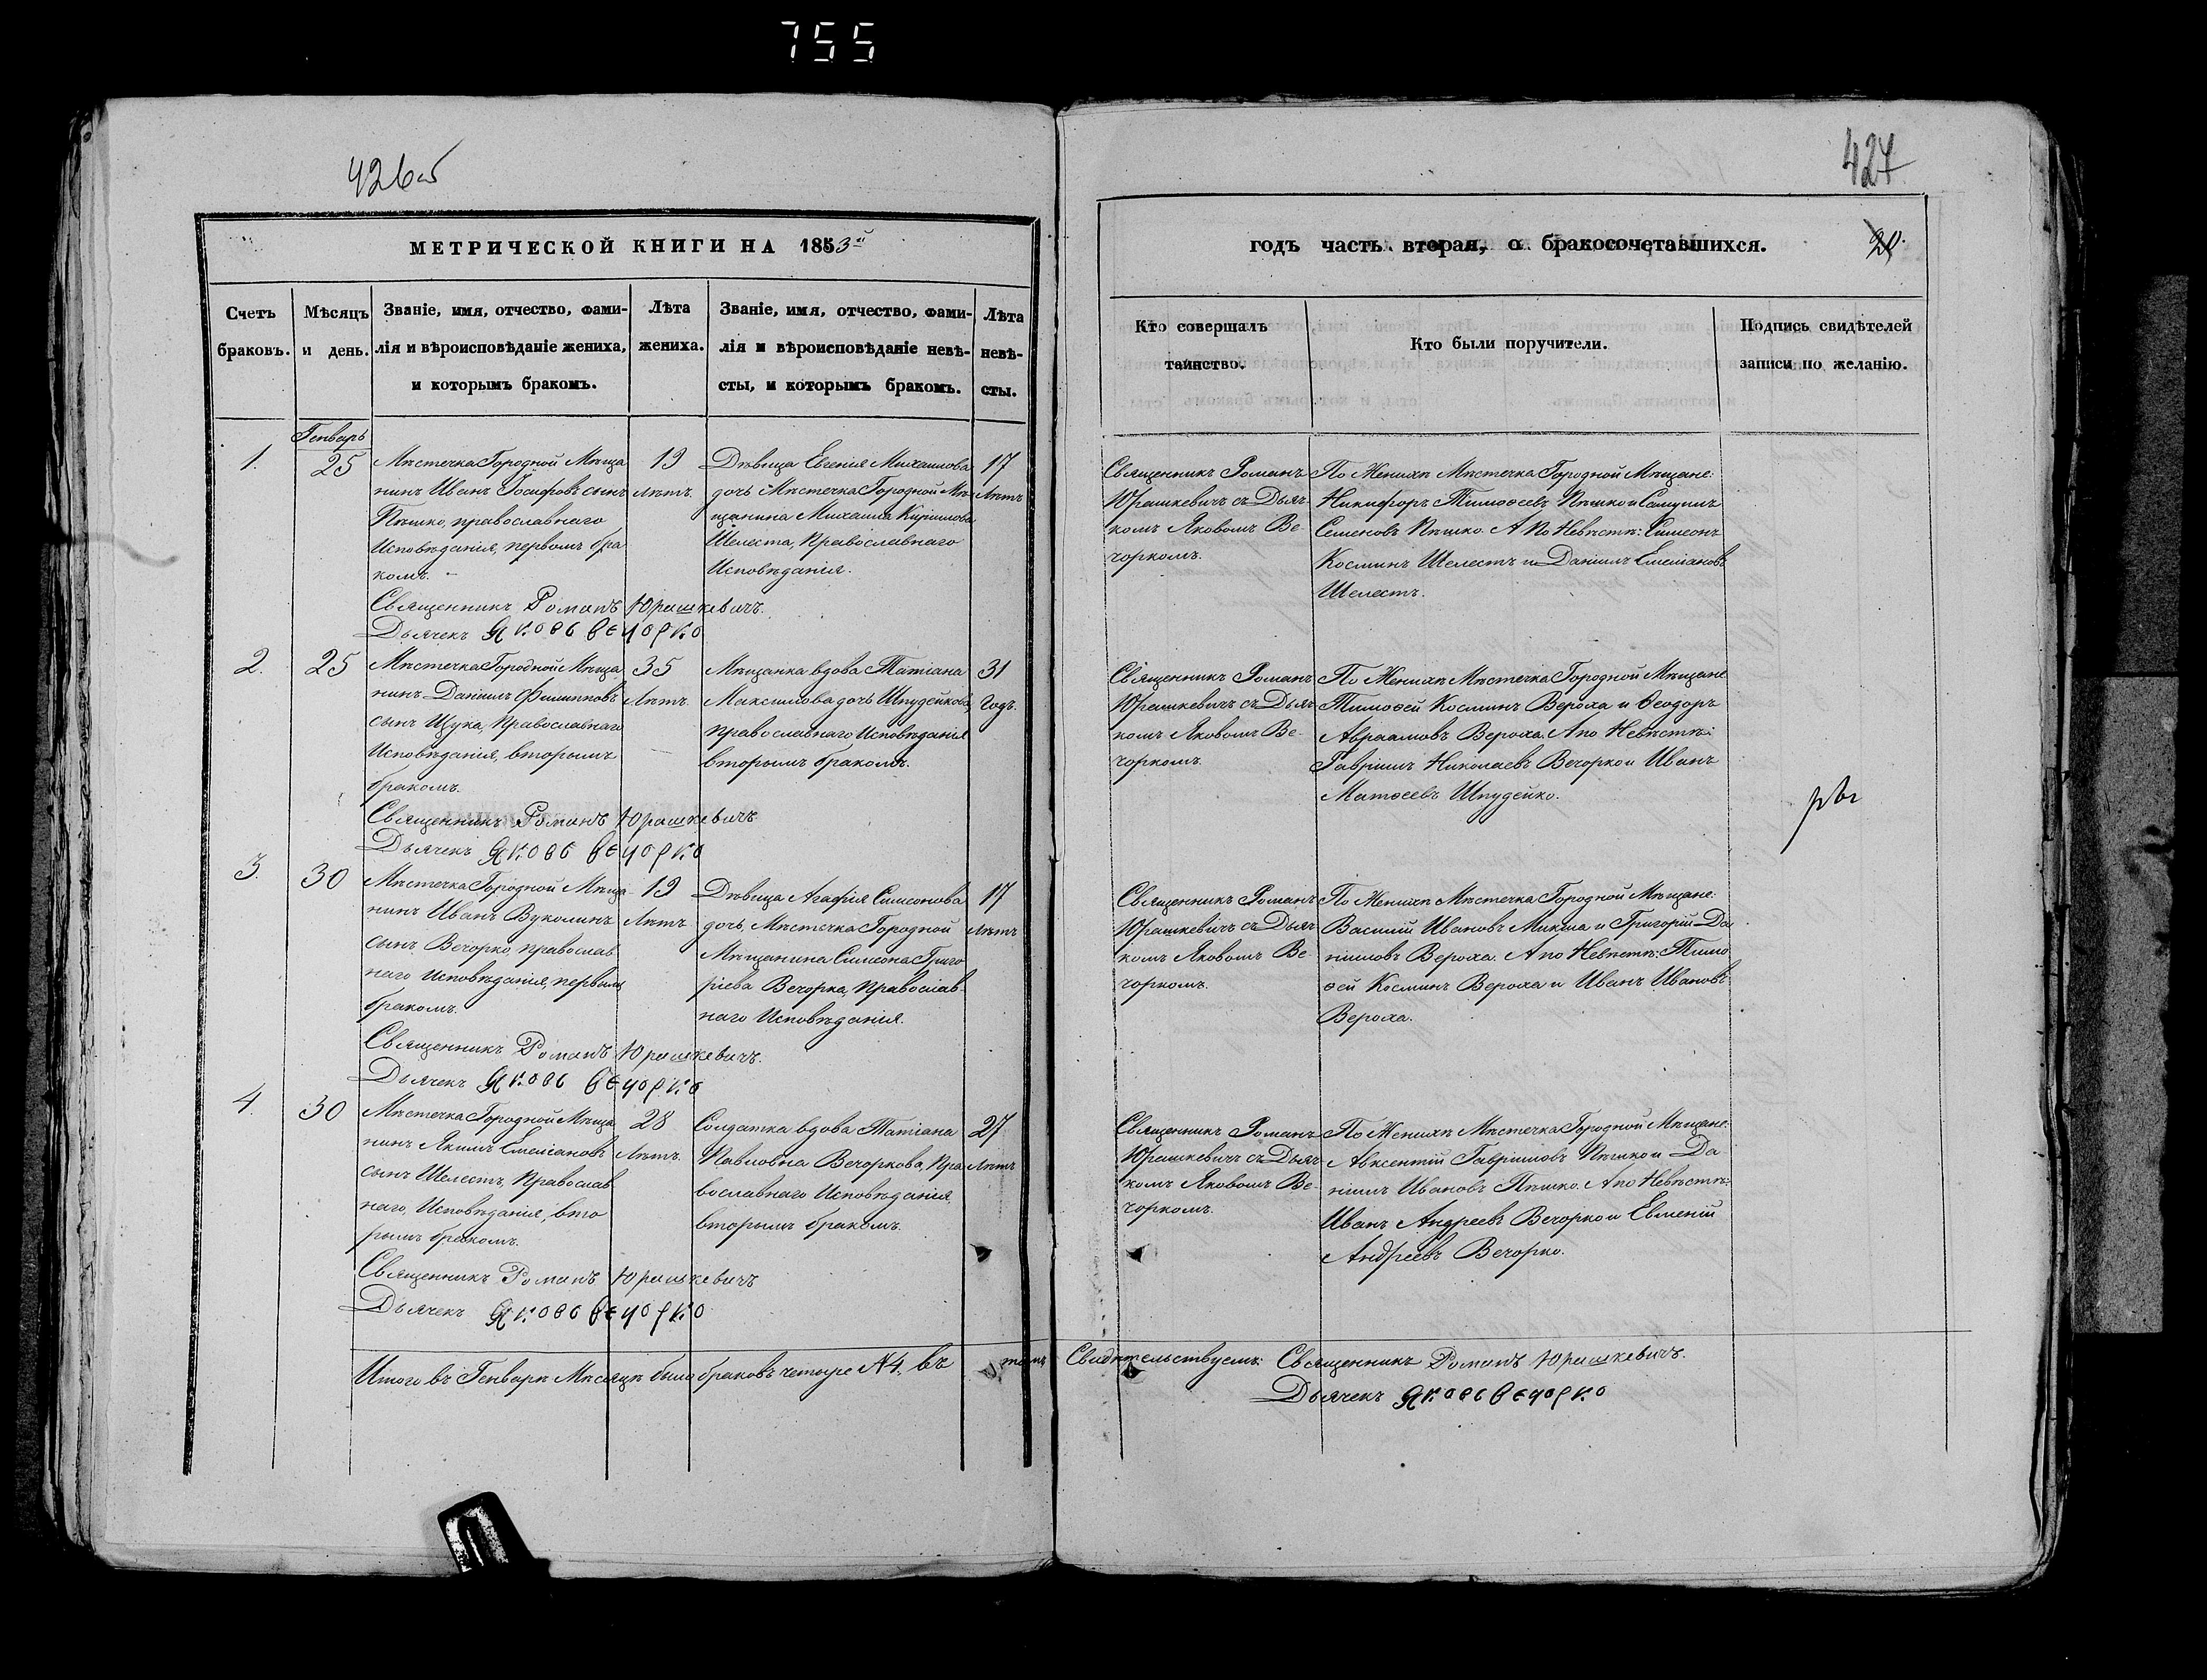 755
426об
427
МЕТРИЧЕСКОЙ КНИГИ НА 1853й
Счетъ
браковъ.
Мѣсяцъ
и день.
Званіе, имя, отчество, фами-
лія и вѣроисповѣданіе жениха,
и которымъ бракомъ.
Лѣта
жениха.
Званіе, имя, отчество, фами-
лія и вѣроисповѣданіе невѣ-
сты, и которымъ бракомъ.
Лѣта
невѣ-
сты.
Генварь
1.
25
Мѣстечка Городной Мѣща
нинъ Иванъ Іосифовъ сынъ
Пѣшко, православнаго
Исповѣданія, первымъ бра
комъ.
19
лѣтъ.
Дѣвица Евгенія Михаилова
дочь Мѣстечка Городной Мѣ-
щанина Михаила Кирилова
Шелеста, Православнаго
Исповѣданія.
17
Лѣтъ
Священникъ Романъ Юрашкевичъ.
Дьячекъ Яковъ Вечорко
2.
25
Мѣстечка Городной Мѣща
нинъ Даніилъ Филиповъ
сынъ Щука, Православнаго
Исповѣданія, вторымъ
бракомъ.
35
Лѣтъ.
Мѣщанка вдова Татіана
Максимова дочь Шпудейкова,
православнаго Исповѣданія
вторымъ бракомъ.
31
Годъ.
Священникъ Романъ Юрашкевичъ
Дьячекъ Яковъ Вечорко
3.
30
Мѣстечка Городной Мѣща
нинъ Иванъ Вуколинъ
сынъ Вечорко, православ
наго Исповѣданія, первымъ
бракомъ.
19
Лѣтъ
Дѣвица Агафія Симеонова
дочь, Мѣстечка Городной
Мѣщанина Симеона Григо
ріева Вечорка, Православ-
наго Исповѣданія.
17
Лѣтъ
Священникъ Романъ Юрашкевичъ.
Дьячекъ Яковъ Вечорко
4.
30
Мѣстечка Городной Мѣща
нинъ Якимъ Емеліановъ
сынъ Шелестъ, Православ
наго, Исповѣданія, вто
рымъ бракомъ.
28
Лѣтъ.
Солдатка вдова Татіана
Павловна Вечоркова, Пра
вославнаго Исповѣданія
вторымъ бракомъ.
27
Лѣтъ
Священникъ Романъ Юрашкевичъ
Дьячекъ Яковъ Вечорко
Итого въ Генварѣ Мѣсяцѣ было браковъ четыре №4. въ томъ Свидѣтельствуемъ: Священникъ Романъ Юрашкевичъ.
Дьячекъ Яковъ Вечорко
годъ часть вторая, о бракосочетавшихся.
20.
Кто совершалъ
таинство.
Кто были поручители.
Подпись свидѣтелей
записи по желанію.
Священникъ Романъ
Юрашкевичъ съ Дьяч-
комъ Яковомъ Ве-
чоркомъ.
По Женихѣ Мѣстечка Городной Мѣщане:
Никифоръ Тимоѳеевъ Пѣшко и Самуилъ
Семеновъ Пѣшко. А По Невѣстѣ: Симеонъ
Косминъ Шелестъ и Даніилъ Емеліановъ
Шелестъ.
Священникъ Романъ
Юрашкевичъ съ Дьяч
комъ Яковомъ Ве-
чоркомъ.
По Женихѣ Мѣстечка Городной Мѣщане
Тимоѳей Косминъ Вероха и Ѳеодоръ
Авраамовъ Вероха, А по Невѣстѣ:
Гавріилъ Николаевъ Вечорко и Иванъ
Матѳеевъ Шпудейко.
Священникъ Романъ
Юрашкевичъ съ Дьяч
комъ Яковомъ Ве-
чоркомъ.
По Женихѣ Мѣстечка Городной Мѣщане:
Василій Ивановъ Микша и Григорій Да
ніиловъ Вероха. А по Невѣстѣ: Тимо
ѳей Косминъ Вероха и Иванъ Ивановъ
Вероха.
Священникъ Романъ
Юрашкевичъ съ Дьяч
комъ Яковомъ Ве-
чоркомъ.
По Женихѣ Мѣстечка Городной Мѣщане:
Авксентій Гавріиловъ Пѣшко и Да
ніилъ Ивановъ Пѣшко. А по Невѣстѣ:
Иванъ Андреевъ Вечорко и Евменій
Андреевъ Вечорко.